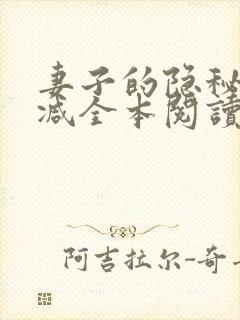 妻子的隐秘
减全本閱讀
阿吉拉尔-奇